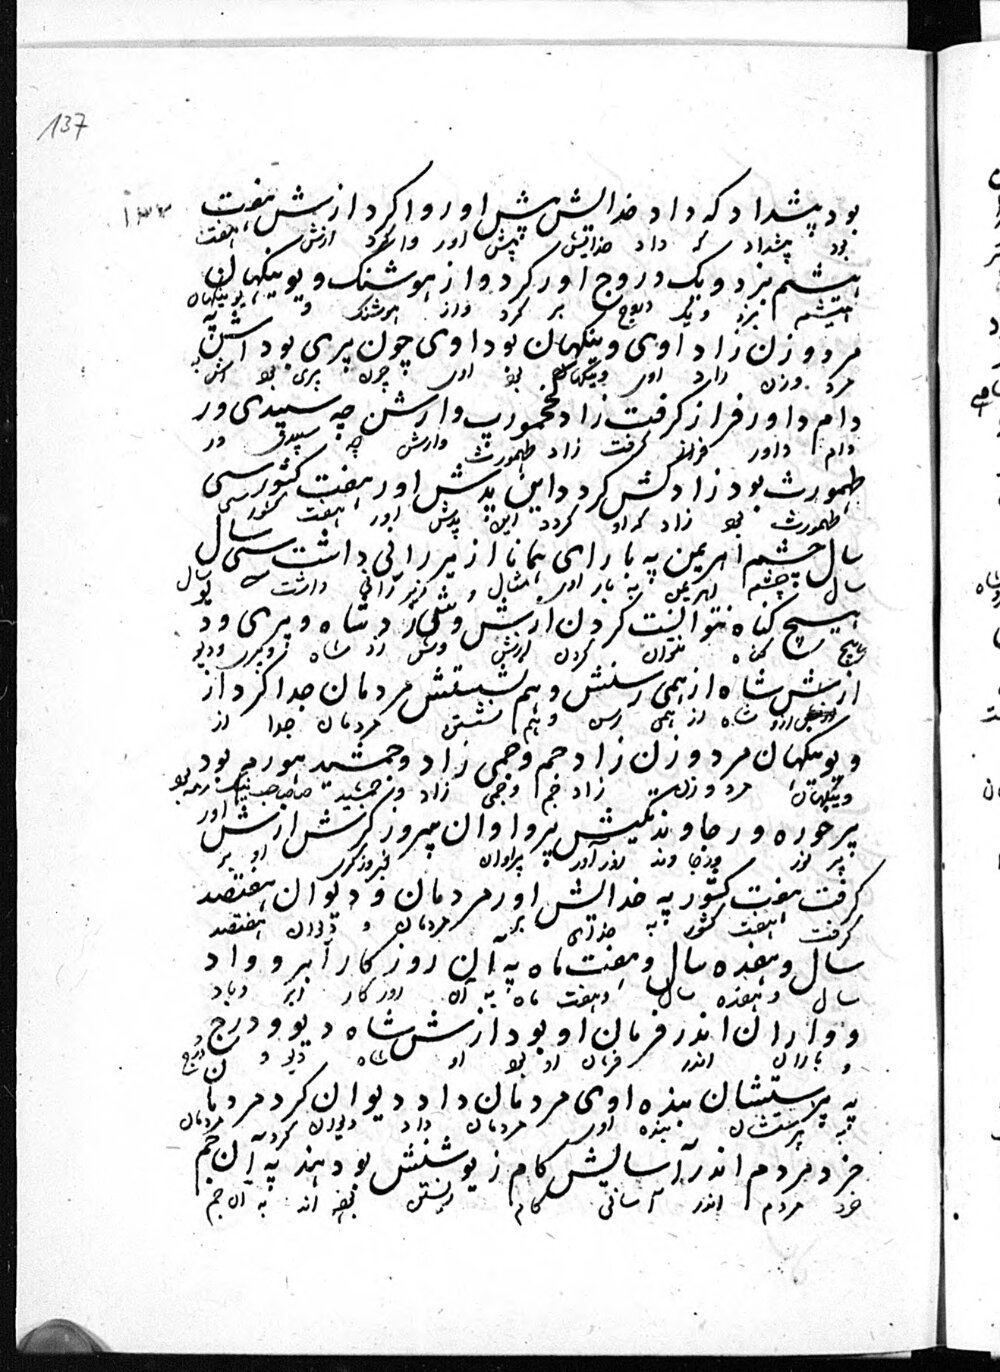 137
۱۳۳
بود پیشداد که داد خدائش پیش اور واکرد ازش هفت
بود پیشداد که داد خدائیش پیش اور واکرد ازش هفت
هشتم بزد و یک دروج اور کرد و از هوشنگ و یوینکهان
هیشتم بزد و یک دروج بر کرد واز هوشنگ و یوینکهان
مرد و زن زاد اوی وینکهان بود اوی چون پری بود اش په
مرد وزن زاد اوی وینکهان بود اوی چون پری بود اش به
دام داور فراز کرفت زاد تخمورپ وارش چه سپیدی ور
دام داور فراز کرفت زاد طهمورث وارش چه سپیدی ور
طهمورث بود زاد کش کرد داین پدش اور هفت کشور سی
طهمورث بود زاد که او کردد این پدش اور هفت کشور سی
سال چشم اهریمن په بارای همانا از میر رانی داشت سی سال
سال چشم اهریمن به بار اوی بمثال و زیر رانی داشت
هیچ کناه نتوانیت کردن ازش وشکی زد شاه و پری ود
هیچ کناه نتوان کردن ازش وشکی زد شاه وپری ودیو
ازش شاه از همی رسنش و هم نشیتش مردمان جدا کرد از
شاه از همی رسن و هم نشستن مردمان جدا از
ویوینکهان مرد و زن زاد جم و جمی زاد و جمشید هورمه بود
وینکهان مرد و زن زاد جم وجمی زاد وجمشید صاحب نیک رمه بود
پرخوره ورجاوند تکیش پرواوان پیروزکرش ازش اور
پر نور ورجاوند زورآور پراوان فیروزکری او بر
کرفت هفت کشور په خدائش اور مردمان و دیوان هفتصد
کرفت هفت کشور به خدای بر مردمان و دیوان هفتصد
سال و هفده سال و هفت ماه په آن روزکار ابر و واد
سال و هفده سال وهفت ماه به آن روزکار ابر وباد
و واران اندر فرمان او بود ازش شاه دیو و درج
و باران اندر فرمان او بود او شاه دیو و دروج
په پرستشان بنده اوی مردمان داد دیوان کرد مردمان
به پرستشان بنده اوی مردمان داد دیوان کرد مردمان
خرد مردم اندر آسایش کام زیوشنش بودهند په آن جم
خرد مردم اندر آسانی کام زیستن بوده اند به آن جم